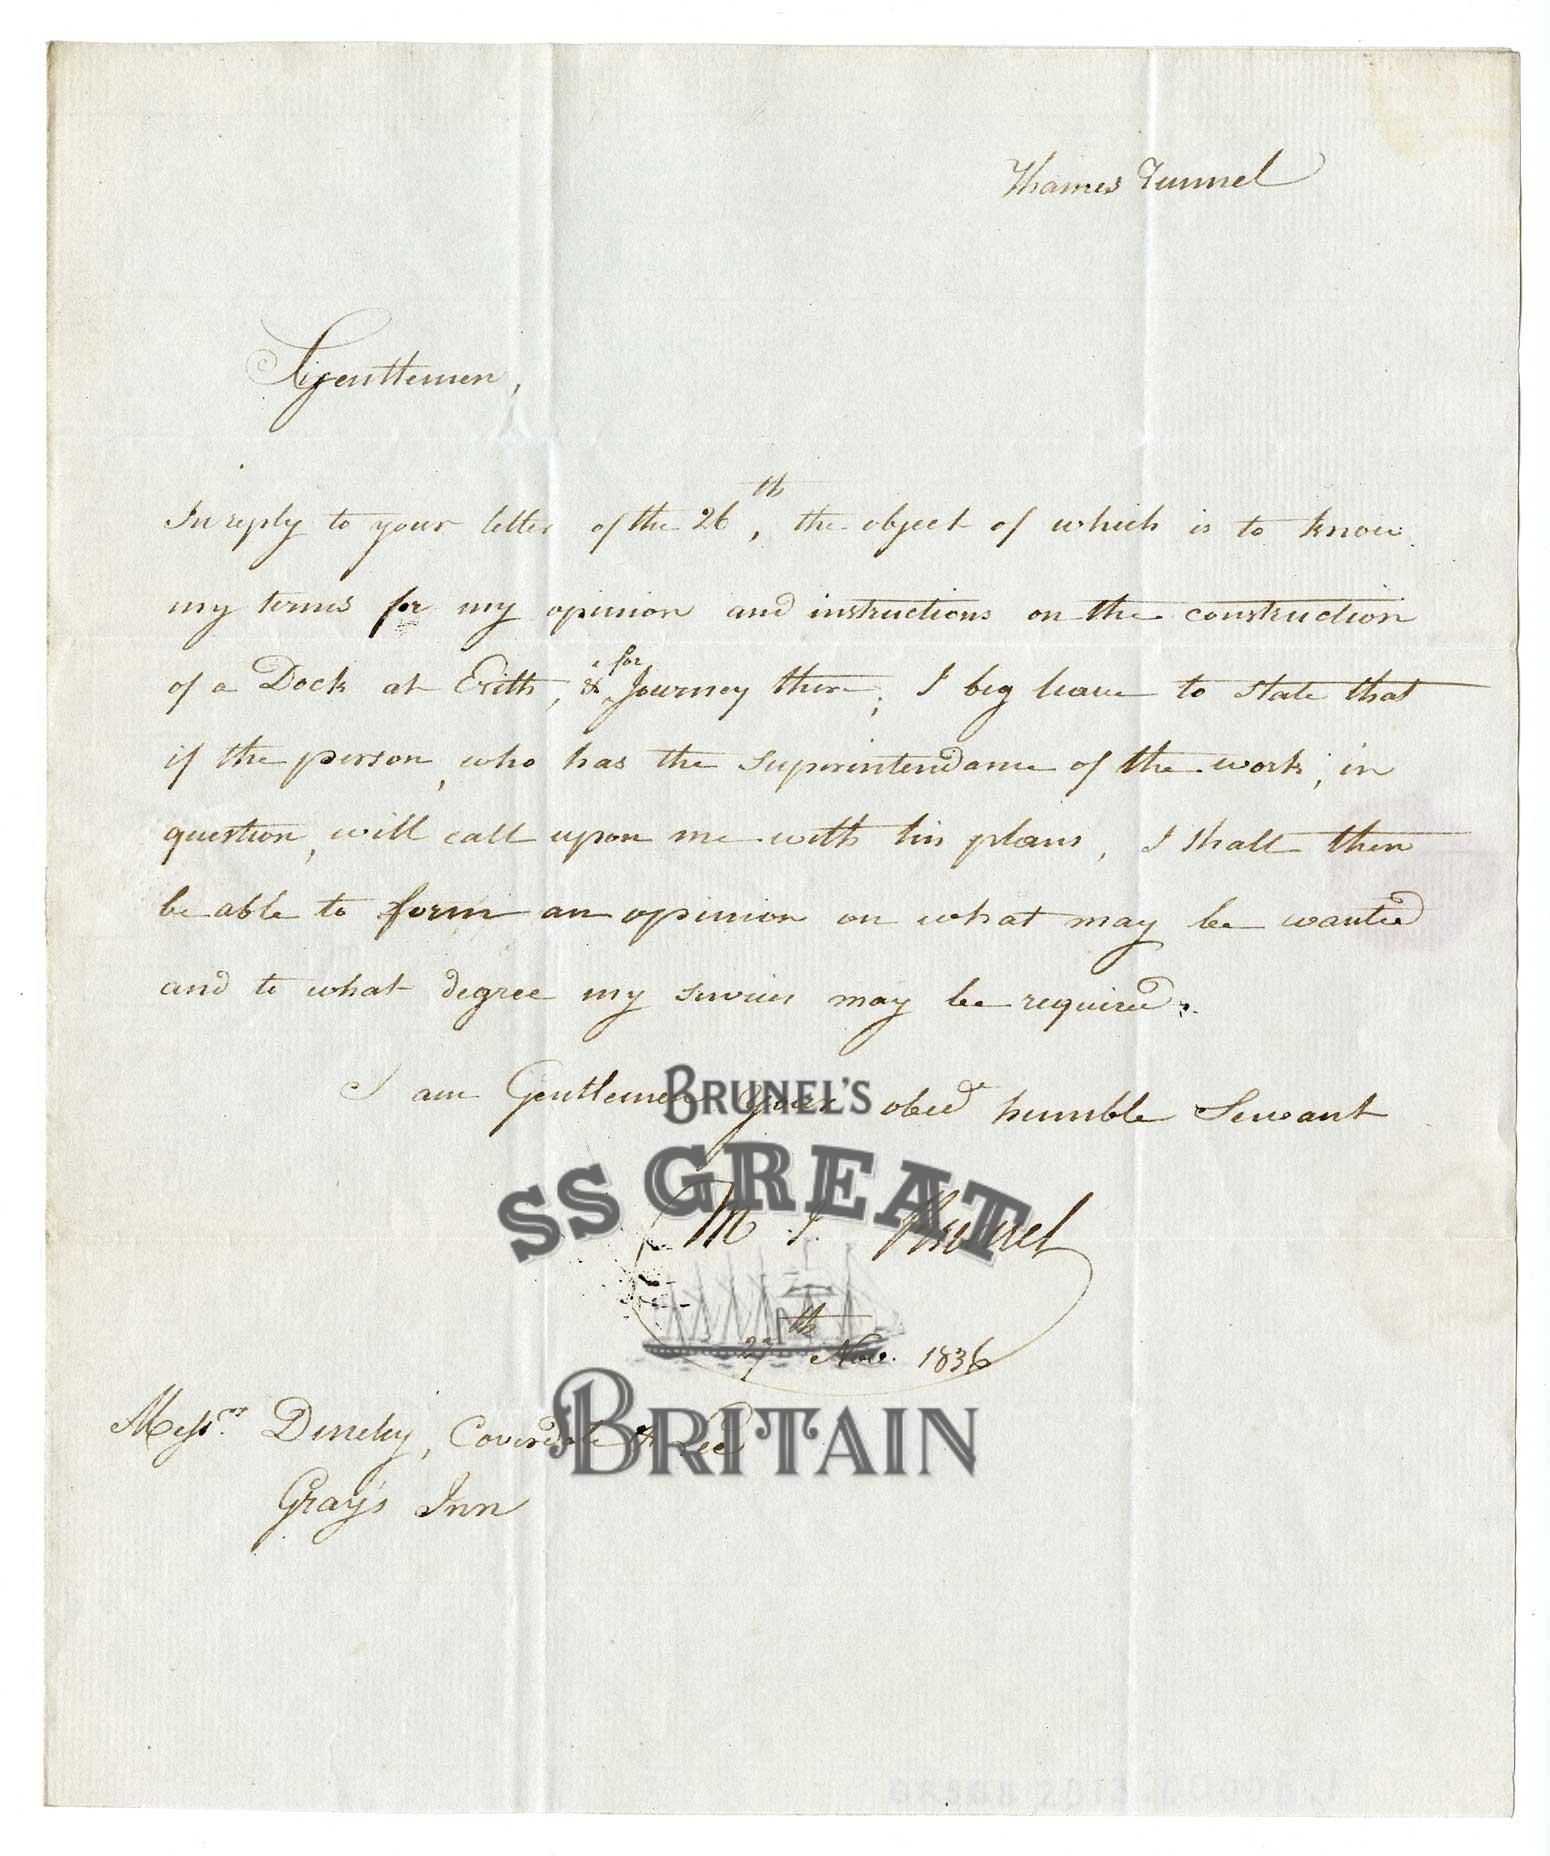 Thames Tunnel
Gentlemen,
In reply to your letter of the 26th, the object of which is to know
my terms for my opinion and instructions on the construction
of a Dock at Erith, & for Journey there; I beg leave to state that
if the person, who has the superintendance of the work, in
question, will call upon me with his plans, I shall then
be able to form an opinion on what may be wanted
and to what degree my services may be required.
I am Gentlemen Your obedt humble Servant
BRUNEL'S
SS GREAT
M I Brunel
27th Nov. 1836
BRITAIN
Messrs Dineley, Coverdale & Lee
Gray's Inn